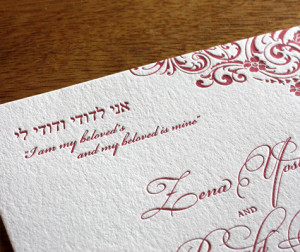 אני לדודי ודודי לי
"I am my beloved's
and my beloved is mine"
Zena
AND